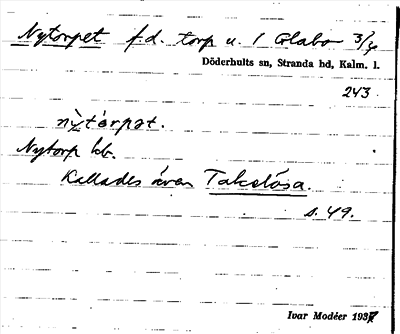 Nytorpet f.d. torp u. 1 Glabo 3/4
Döderhults sn, Stranda hd, Kalm. l.
243
nỳtórpət.
Nytorp kb.
Kallades även Takelösa.
s. 49.
Ivar Modéer 1937